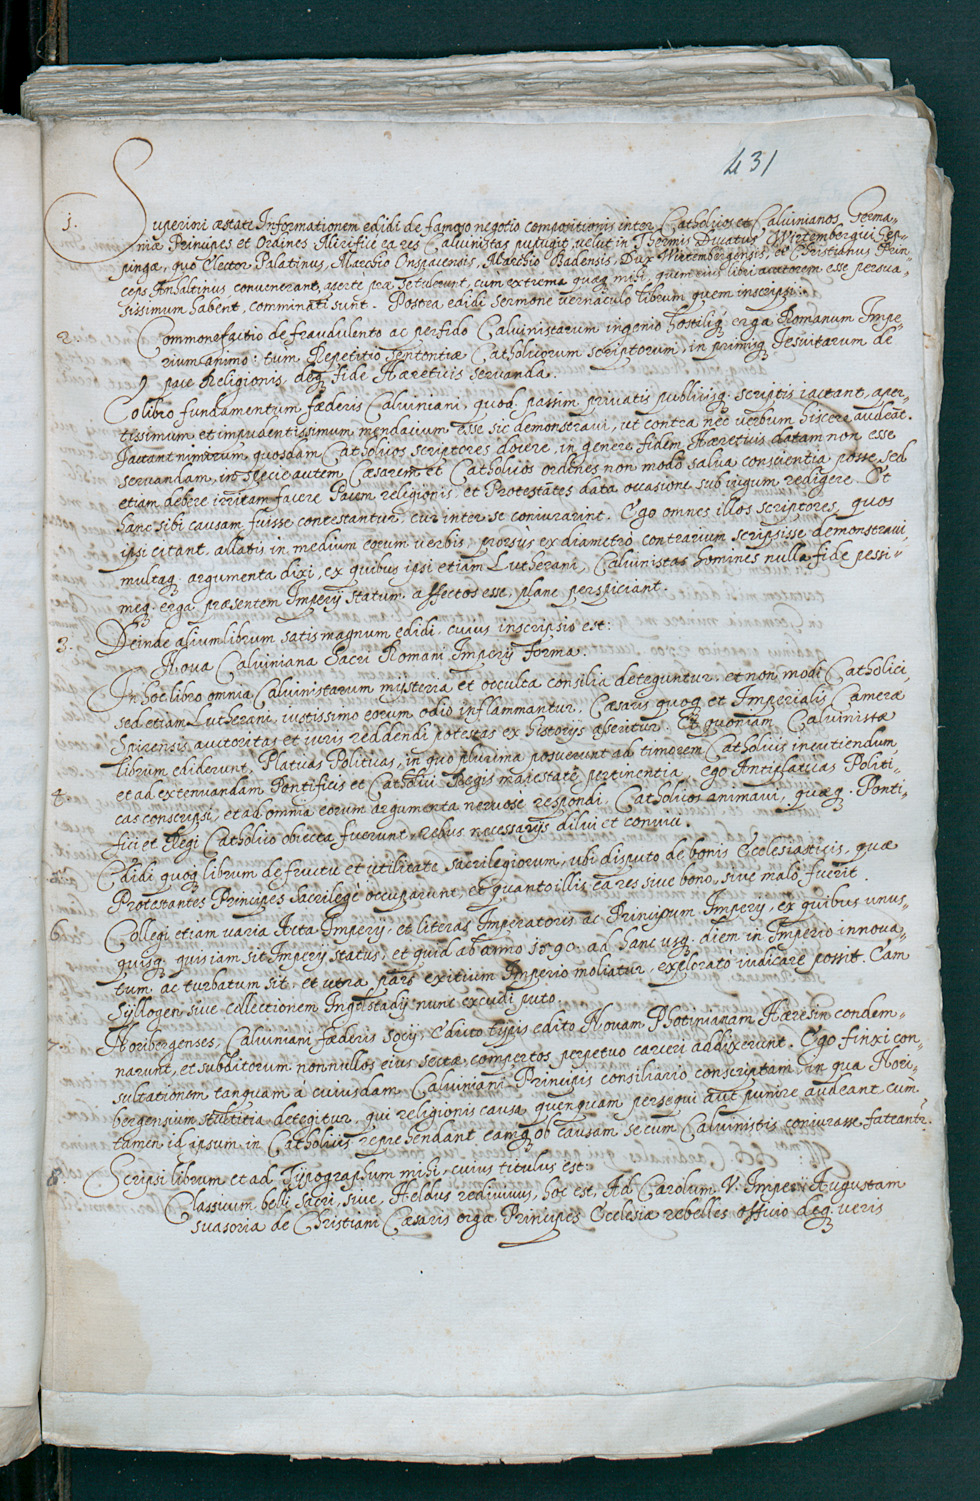 431
1. Superiori æstate Informationem edidi de famoso negotio compositionis inter Catholicos et Calvinianos Germa-
niæ Principes et Ordines. Mirificè ea res Calvinistas pupugit, velut in Thermis Ducatus Wirtembergici Gep-
pinga, quo Elector Palatinus, Marchio Onspacensis, Marchio Badensis, Dux Wirtembergensis, et Christianus Prin-
ceps Anhaltinus convenerant, apertè præ se tulerunt, cùm extrema quæq mihi, quem eius libri auctorem esse persua-
sissimum habent, comminati sunt. Postea edidi sermone vernaculo librum quem inscripsi:
2. Commonefactio de fraudulento ac perfido Calvinistarum ingenio hostiliq erga Romanum Impe-
rium animo: tum Repetitio sententiæ Catholicorum scriptorum, in primisq Jesuitarum de
pace Religionis deq fide Hæreticis servanda.
Eo libro fundamentum fœderis Calviniani, quod passim privatis publicisq scriptis iactant, aper-
tissimum et impudentissimum mendacium esse sic demonstravi, ut contra nec verbum hiscere audeāt.
Jactant nimirum quosdam Catholicos scriptores docere, in genere fidem Hæreticis datam non esse
servandam, in specie autem Cæsarem et Catholicos ordines non modo salva conscientia posse, sed
etiam debere irritam facere Pacem religionis, et Protestātes data occasione sub iugum redigere. Et
hanc sibi causam fuisse contestantur, cur inter se coniurarint. Ego omnes illos scriptores, quos
ipsi citant, allatis in medium eorum verbis, prorsùs ex diametro contrarium scripsisse demonstravi
multaq argumenta dixi, ex quibus ipsi etiam Lutherani, Calvinistas homines nulla fide pessi-
meq erga præsentem Imperij statum affectos esse, planè perspiciant.
3. Deinde alium librum satis magnum edidi, cuius inscripsio est:
Nova Calviniana Sacri Romani Imperij forma.
In hoc libro omnia Calvinistarum mysteria et occulta consilia deteguntur, et non modò Catholici,
sed etiam Lutherani iustissimo eorum odio inflammantur. Cæsaris quoq et Imperialis Cameræ
Spirensis auctoritas et iuris reddendi potestas ex historijs aperitur. Et quoniam Calvinistæ
librum ediderunt, Plateas Politicas, in quo plurima posuerunt ad timorem Catholicis incutiendum,
4. et ad extenuandam Pontificis et Catholici Regis maiestatē pertinentia, ego Antiplateias Politi-
cas conscripsi, et ad omnia eorum argumenta nervosè respondi, Catholicos animavi, quæq Ponti-
fici et Regi Catholico obiecta fuerunt, rebus necessarijs dilui et convici.
5. Edidi quoq librum de fructu et utilitate sacrilegiorum, ubi disputo de bonis Ecclesiasticis, quæ
Protestantes Principes sacrilegè occuparunt, et quanto illis ea res sive bono, sive malo fuerit.
6. Collegi etiam varia Acta Imperij, et literas Imperatoris ac Principum Imperij, ex quibus unus-
quisq, quis iam sit Imperij status, et quid ab anno 1590. ad hanc usq diem in Imperio innova-
tum ac turbatum sit, et utra pars exitium Imperio moliatur, exploratò iudicare possit. Eam
Syllogen sive collectionem Ingolstadij nunc excudi puto.
7. Noribergenses, Calviniani fœderis socij, Edicto typis edito Novam Photinianam Hæresin condem-
narunt, et subditorum nonnullos eius sectæ compertos perpetuo carceri addixerunt. Ego finxi con-
sultationem tanquam à cuiusdam Calviniani Principis consiliario conscriptam, in qua Nori-
bergensium stultitia detegitur, qui religionis causa quenquam persequi aut punire audeant, cum
tamen id ipsum in Catholicis reprehendant, eamq ob causam se cum Calvinistis coniurasse fateantr.
8. Scripsi librum et ad Typographum misi, cuius titulus est:
Classicum belli sacri, sive, Heldus redivivus, hoc est, Ad Carolum V. Imper. Augustam
suasoria de Christiani Cæsaris erga Principes Ecclesiæ rebelles officio deq veris